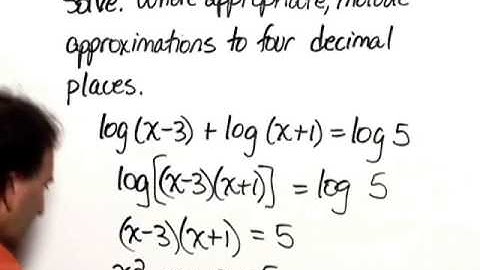 Solve. Where appropriate, include
approximations to four decimal
places.
log(x-3) + log(x+1) = log 5
log[(x-3)(x+1)] = log 5
(x-3)(x+1) = 5